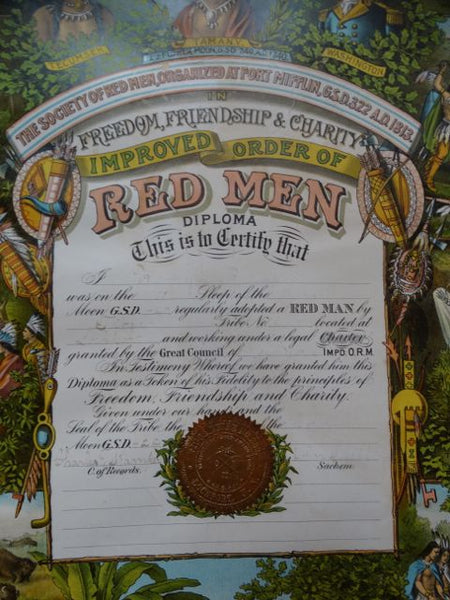 TECUMSEH
TAMANY
WASHINGTON
THE SOCIETY OF RED MEN, ORGANIZED AT FORT MIFFLIN, G.S.D. 322 A.D. 1813.
IN
FREEDOM, FRIENDSHIP & CHARITY
IMPROVED ORDER OF
RED MEN
DIPLOMA
This is to Certify that
was on the Sleep of the
Moon G.S.D. regularly adopted a RED MAN by
Tribe No located at
and working under a legal Charter
granted by the Great Council of IMPD. O.R.M.
In Testimony Whereof we have granted him this
Diploma as a Token of his Fidelity to the principles of
Freedom, Friendship and Charity.
Given under our hands and the
Seal of the Tribe the of the
Moon G.S.D.
C. of Records. Sachem.